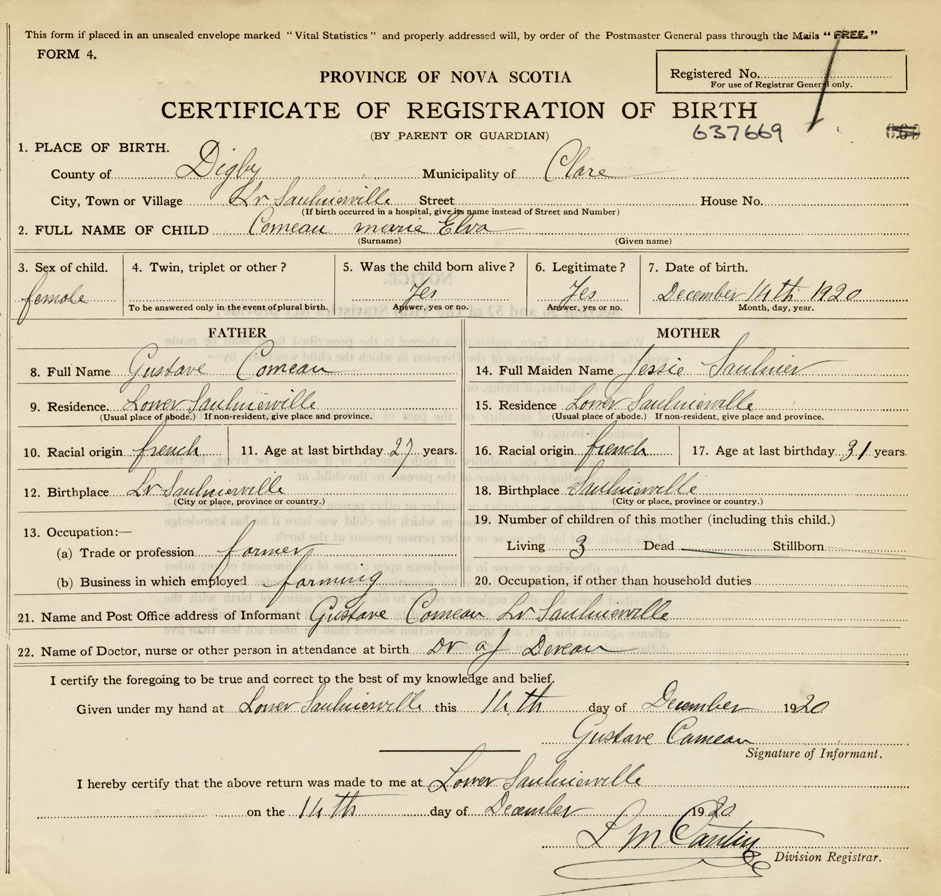 This form if placed in an unsealed envelope marked "Vital Statistics" and properly addressed will, by order of the Postmaster General pass through the Mails "FREE."
FORM 4.
PROVINCE OF NOVA SCOTIA
Registered No.
For use of Registrar General only.
CERTIFICATE OF REGISTRATION OF BIRTH
(BY PARENT OR GUARDIAN)
637669
1. PLACE OF BIRTH.
County of Digby Municipality of Clare
City, Town or Village Lr Saulnierville Street House No.
(If birth occurred in a hospital, give its name instead of Street and Number)
2. FULL NAME OF CHILD Comeau marie Elva
(Surname) (Given name)
3. Sex of child. 4. Twin, triplet or other? 5. Was the child born alive? 6. Legitimate? 7. Date of birth.
female Yes Yes December 14th 1920
To be answered only in the event of plural birth. Answer, yes or no. Answer, yes or no. Month, day, year.
FATHER MOTHER
8. Full Name Gustave Comeau 14. Full Maiden Name Jessie Saulnier
9. Residence. Lower Saulnierville 15. Residence Lower Saulnierville
(Usual place of abode.) If non-resident, give place and province. (Usual place of abode.) If non-resident, give place and province.
10. Racial origin french 11. Age at last birthday 27 years. 16. Racial origin french 17. Age at last birthday 31 years
12. Birthplace Lr Saulnierville 18. Birthplace Saulnierville
(City or place, province or country.) (City or place, province or country.)
13. Occupation:— 19. Number of children of this mother (including this child.)
(a) Trade or profession farmer Living 3 Dead Stillborn
(b) Business in which employed farming 20. Occupation, if other than household duties
21. Name and Post Office address of Informant Gustave Comeau Lr Saulnierville
22. Name of Doctor, nurse or other person in attendance at birth Dr a J Deveau
I certify the foregoing to be true and correct to the best of my knowledge and belief.
Given under my hand at Lower Saulnierville this 14th day of December 1920
Gustave Comeau
Signature of Informant.
I hereby certify that the above return was made to me at Lower Saulnierville
on the 14th day of December 1920
L M Cantin
Division Registrar.